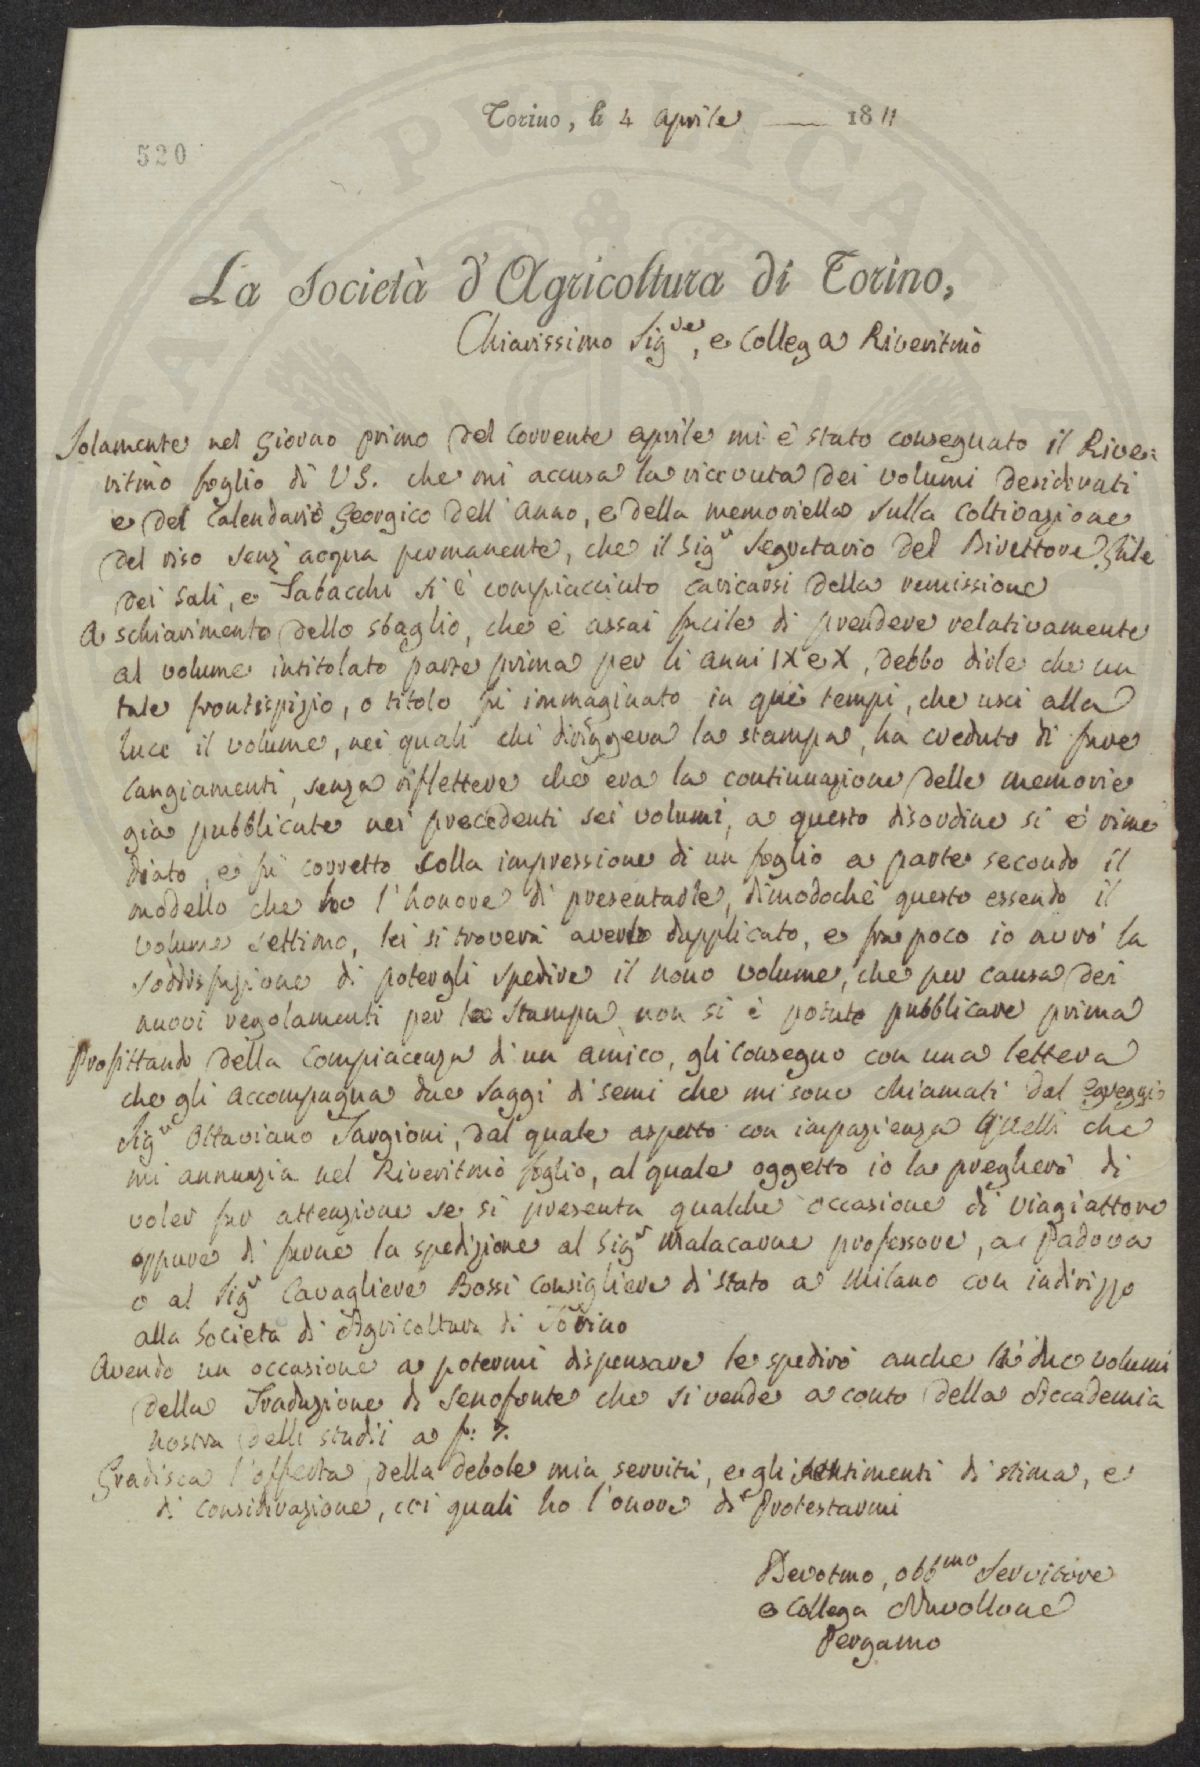 Torino, li 4 aprile 1811
520
La Società d'Agricoltura di Torino,
Chiarissimo Sig.re, e Collega Riveritmò
Solamente nel giorno primo del corrente aprile mi è stato consegnato il Rive=
ritmò foglio di VS. che mi accusa la ricevuta dei volumi desiderati
e del Calendario Georgico dell'anno, e della memoriella sulla coltivazione
del riso senz'acqua permanente, che il Sigr Segretario del Direttore Gñle
dei Sali, e Tabacchi si è compiacciuto caricarsi della remissione
A schiarimento dello sbaglio, che è assai facile di prendere relativamente
al volume intitolato parte prima per li anni IX e X, debbo dirle che un
tale frontispizio, o titolo fu immaginato in quei tempi, che usci alla
luce il volume, nei quali chi diriggeva la stampa, ha creduto di fare
cangiamenti, senza riflettere che era la continuazione delle memorie
già pubblicate nei precedenti sei volumi, a questo disordine si è rime
diato, e fu corretto colla impressione di un foglio a parte secondo il
modello che ho l'honore di presentarle, dimodochè questo essendo il
volume settimo, lei si troverà averlo dupplicato, e fra poco io avrò la
soddisfazione di potergli spedire il nono volume, che per causa dei
nuovi regolamenti per la stampa non si è potuto pubblicare prima
Profittando della compiacenza di un amico, gli consegno con una lettera
che gli accompagna due saggi di semi che mi sono chiamati dal egreggio
Sigr Ottaviano Targioni, dal quale aspetto con impazienza quelli che
mi annunzia nel Riveritmò foglio, al quale oggetto io la pregherò di
voler far attenzione se si presenta qualche occasione di viagiattore
oppure di farne la spedizione al Sigr Malacarne professore, a Padova
o al Sigr Cavagliere Bossi Consigliere di stato a Milano con indirizzo
alla Società di Agricoltura di Torino
Avendo un occasione a potermi dispensare le spedirò anche li due volumi
della Traduzione di Senofonte che si vende a conto della Accademia
nostra delli studii a f: 7.
Gradisca l'offerta della debole mia servitù, e gli sentimenti di stima, e
di considerazione, coi quali ho l'onore di Protestarmi
Devotmo, obbmo Servitore
e Collega Nuvollone
Pergamo